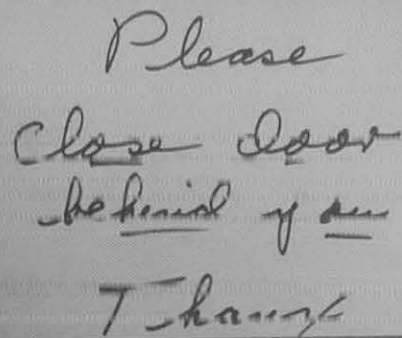 Please
Close door
behind you
Thanks